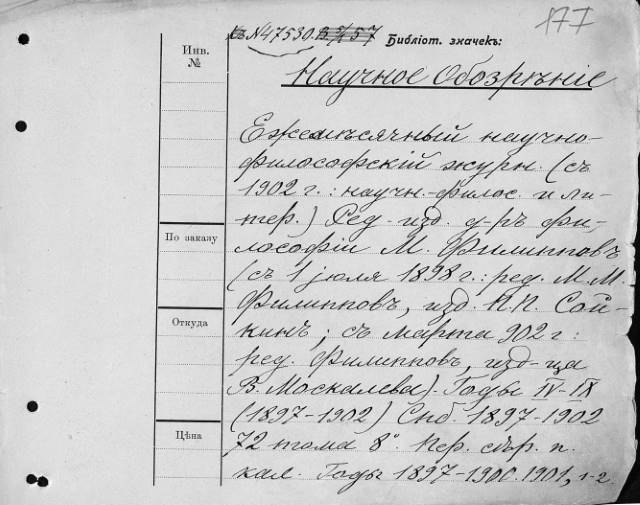 177
№47530. B 7/57 Библіот. значекъ:
Инв.
№
Научное Обозрѣніе
Ежемѣсячный научно-
философскій журн. (съ
1902 г.: научн.-филос. и ли-
тер.) Ред.-изд. д-ръ фи-
По заказу
лософіи М. Филипповъ
(съ 1 юля 1898 г.: ред. М. М.
Филипповъ, изд. П. П. Сой-
Откуда
кинъ; съ марта 902 г.:
ред. Филипповъ, изд-ца
В. Москалева). Годы IV-IX
(1897-1902) Спб. 1897-1902
Цѣна
72 тома 8°. Пер. сѣр. п.
кал. Годы 1897-1900. 1901, 1-2